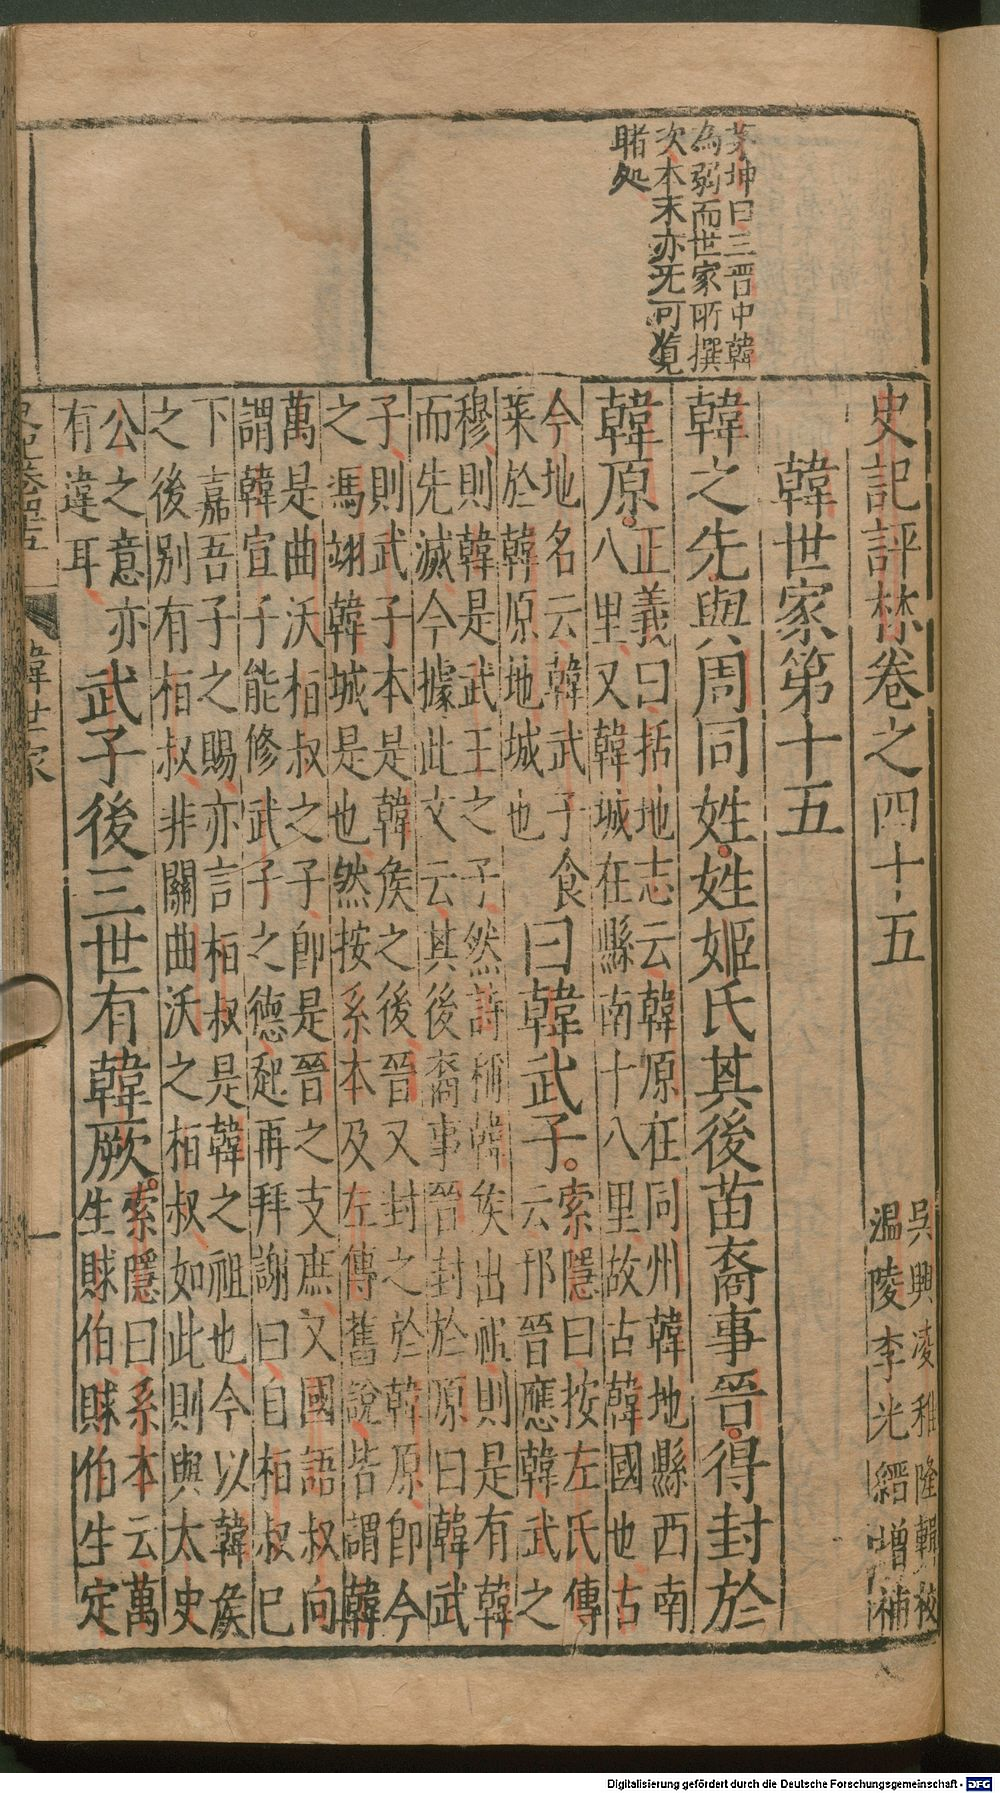 茅坤曰三晋中韓
為弱而世家所撰
次本末亦旡可覧
睹処
史記評林卷之四十五
吳興凌稚隆輯校
溫陵李光縉增補
韓世家第十五
韓之先與周同姓姓姬氏其後苗裔事晉得封於
韓原
正義曰括地志云韓原在同州韓地縣西南
八里又韓城在縣南十八里故古韓國也古
今地名云韓武子食
萊於韓原地城也
曰韓武子
索隱曰按左氏傳
云邘晉應韓武之
穆則韓是武王之子然詩稱韓矦出祖則是有韓
而先滅今據此文云其後裔事晉封於原曰韓武
子則武子本是韓矦之後晉又封之於韓原即今
之馮翊韓城是也然按系本及左傳舊說皆謂韓
萬是曲沃栢叔之子即是晉之支庶又國語叔向
謂韓宣子能修武子之德起再拜謝曰自栢叔已
下嘉吾子之賜亦言栢叔是韓之祖也今以韓矦
之後别有栢叔非關曲沃之栢叔如此則與太史
公之意亦
有違耳
武子後三世有韓厥
索隱曰系本云萬
生賕伯賕伯生定
韓世家
一
Digitalisierung gefördert durch die Deutsche Forschungsgemeinschaft - DFG